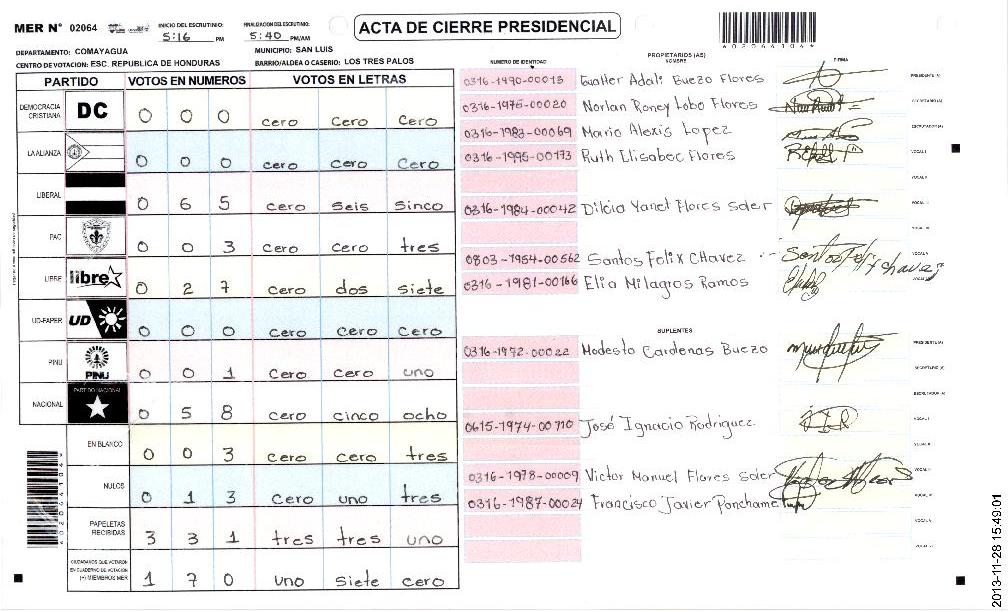 MER N° 02064 INICIO DEL ESCRUTINIO: 5:16 PM FINALIZACION DEL ESCRUTINIO: 5:40 PM/AM
ACTA DE CIERRE PRESIDENCIAL
DEPARTAMENTO: COMAYAGUA MUNICIPIO: SAN LUIS
CENTRO DE VOTACION: ESC. REPUBLICA DE HONDURAS BARRIO/ALDEA O CASERIO: LOS TRES PALOS
PARTIDO VOTOS EN NUMEROS VOTOS EN LETRAS
DEMOCRACIA CRISTIANA DC 0 0 0 cero cero cero
LA ALIANZA 0 0 0 cero cero cero
LIBERAL 0 6 5 cero seis sinco
PAC 0 0 3 cero cero tres
LIBRE libre 0 2 7 cero dos siete
UD-FAPER UD 0 0 0 cero cero cero
PINU PINU 0 0 1 cero cero uno
NACIONAL PARTIDO NACIONAL 0 5 8 cero cinco ocho
EN BLANCO 0 0 3 cero cero tres
NULOS 0 1 3 cero uno tres
PAPELETAS RECIBIDAS 3 3 1 tres tres uno
CIUDADANOS QUE VOTARON EN CUADERNO DE VOTACION (+) MIEMBROS MER 1 7 0 uno siete cero
NUMERO DE IDENTIDAD PROPIETARIOS (AS) NOMBRE FIRMA
0316-1990-00013 Adali Buezo Flores PRESIDENTE (A)
0316-1975-00020 Norlan Roney Lobo Flores SECRETARIO (A)
0316-1983-00069 Mario Alexis Lopez ESCRUTADOR (A)
0316-1995-00173 Ruth Elisabec Flores VOCAL I
VOCAL II
0316-1984-00042 Dilcia Yanet Flores soler VOCAL III
VOCAL IV
0803-1954-00562 Santos Felix Chavez Santos Felix chavez VOCAL V
0316-1981-00166 Elia Milagros Ramos
SUPLENTES
0316-1972-00022 Modesto Cardenas Buezo PRESIDENTE (A)
SECRETARIO (A)
ESCRUTADOR (A)
0615-1974-00710 José Ignacio Rodriguez VOCAL I
VOCAL II
0316-1978-00009 Victor Manuel Flores soler VOCAL III
0316-1987-00024 Francisco Javier Ponchame VOCAL IV
VOCAL V
VOCAL VI
2013-11-28 15:49:01